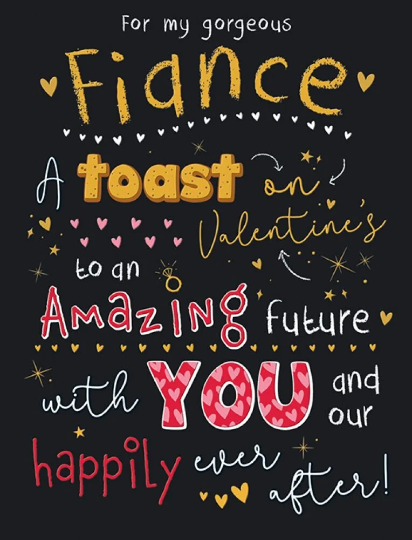 For my gorgeous
Fiance
A toast on
Valentine's
to an
Amazing future
with YOU and
our
happily ever
after!